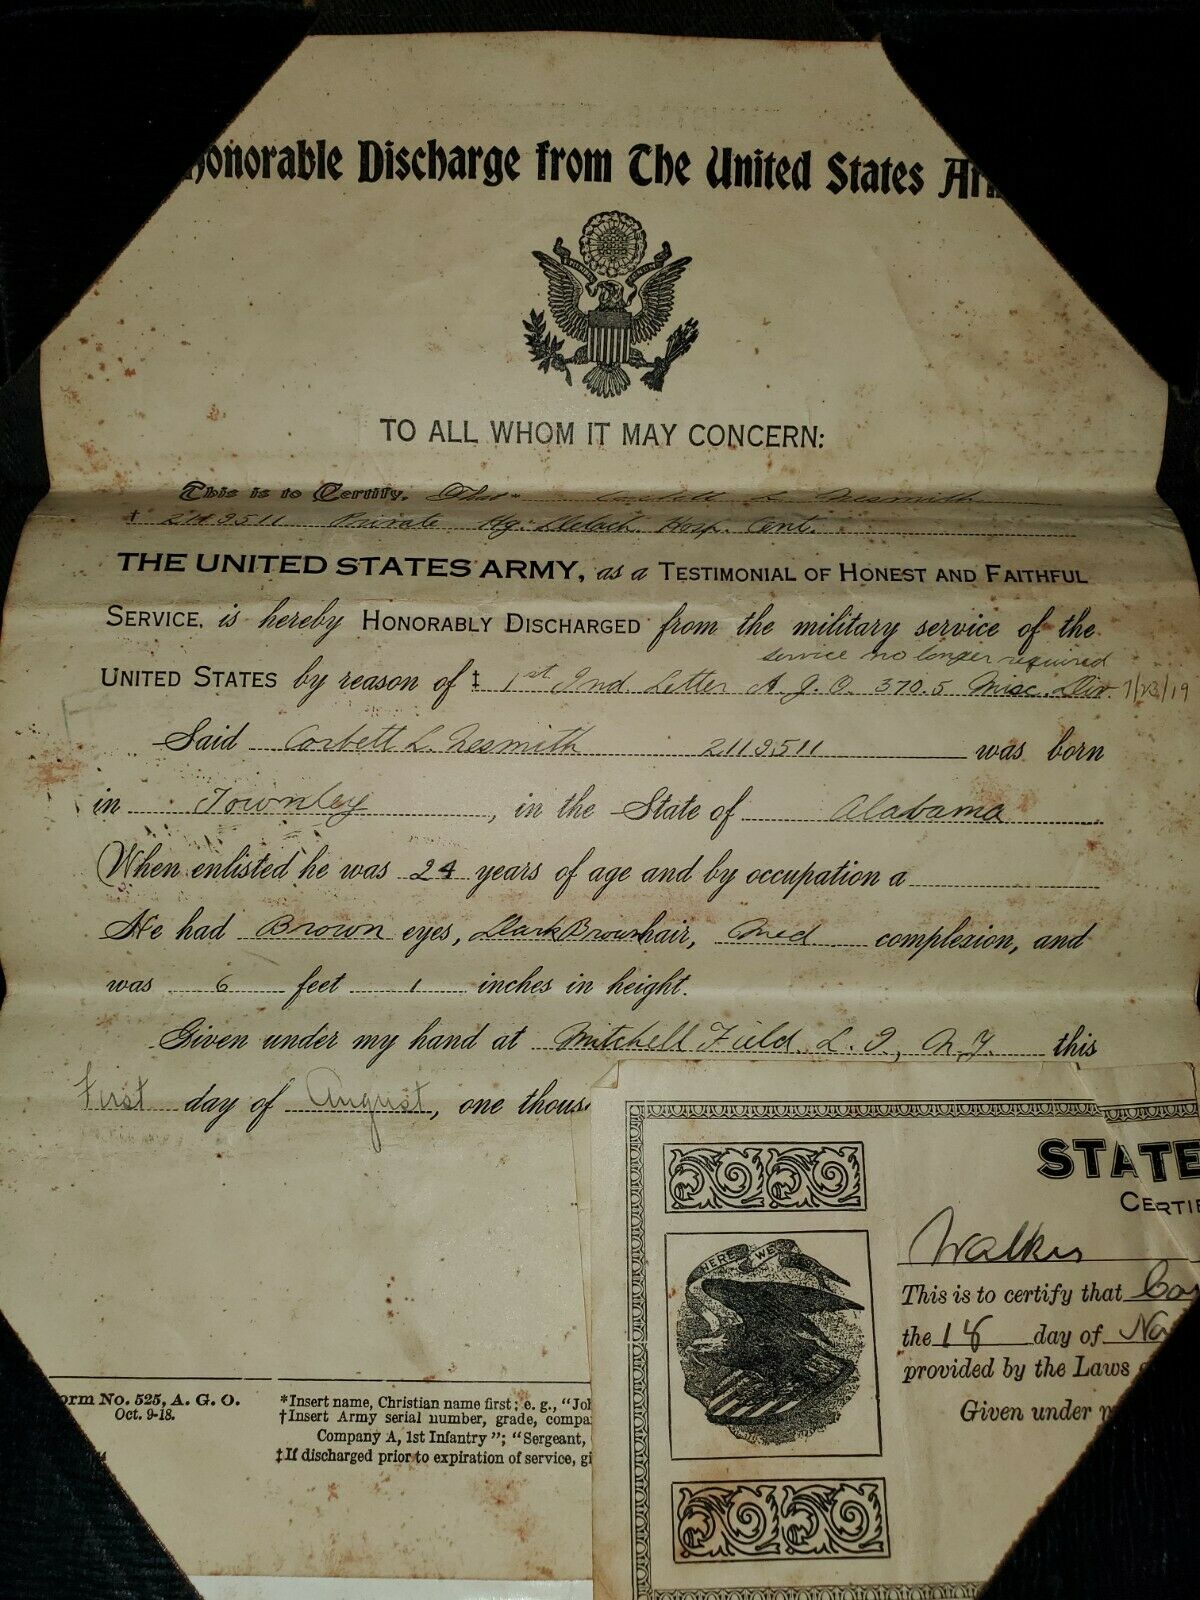 Honorable Discharge from The United States Ar
TO ALL WHOM IT MAY CONCERN:
This is to Certify, That* Corbett L. Nesmith
† 2119511 Private Hq. Detach. Hosp. Cent.
THE UNITED STATES ARMY, as a TESTIMONIAL OF HONEST AND FAITHFUL
SERVICE, is hereby HONORABLY DISCHARGED from the military service of the
service no longer required
UNITED STATES by reason of ‡ 1st Ind Letter A.G.O. 370.5 Misc. Div. 7/23/19
Said Corbett L. Nesmith 2119511 was born
in Townley, in the State of Alabama
When enlisted he was 24 years of age and by occupation a
He had Brown eyes, Dark Brown hair, Med complexion, and
was 6 feet 1 inches in height.
Given under my hand at Mitchell Field, L. I., N.Y. this
First day of August, one thous
orm No. 525, A. G. O.
Oct. 9-18.
*Insert name, Christian name first; e. g., "Jo
†Insert Army serial number, grade, compa
Company A, 1st Infantry"; "Sergeant,
‡If discharged prior to expiration of service, gi
STATE
CERTIF
Walker
HERE WE
This is to certify that Cor
the 18 day of Nov
provided by the Laws
Given under